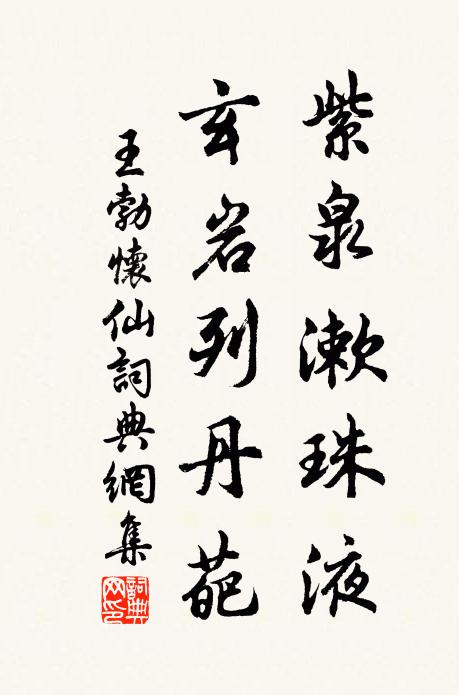 紫泉漱珠液
玄岩列丹葩
王勃懷仙詞典網集
詞典网印